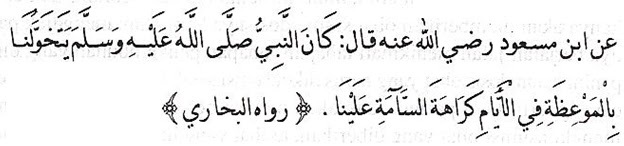 عن ابن مسعود رضي الله عنه قال: كَانَ النَّبِيُّ صَلَّى اللَّهُ عَلَيْهِ وَسَلَّمَ يَتَخَوَّلُنَا
بِالْمَوْعِظَةِ فِي الْأَيَّامِ كَرَاهَةَ السَّآمَةِ عَلَيْنَا . ﴿ رواه البخاري ﴾